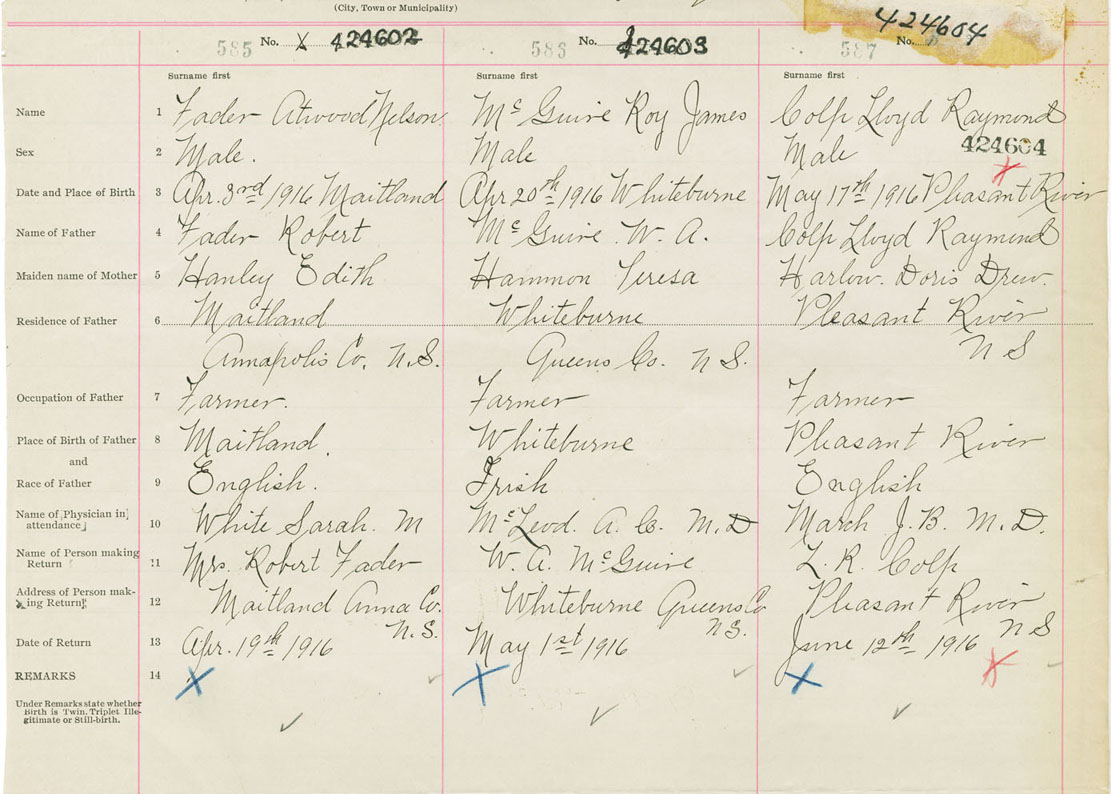 (City, Town or Municipality)
585 No. X 424602
583 No. 424603
587 No. 424604
Surname first Surname first Surname first
Name 1 Fader Atwood Nelson. McGuire Roy James Colp Lloyd Raymond
424604
Sex 2 Male. Male Male
Date and Place of Birth 3 Apr. 3rd 1916 Maitland Apr 20th 1916 Whiteburne May 17th 1916 Pleasant River
Name of Father 4 Fader Robert McGuire. W. A. Colp Lloyd Raymond
Maiden name of Mother 5 Hanley Edith Hammon Teresa Harlow. Doris Drew.
Residence of Father 6 Maitland Whiteburne Pleasant River
Annapolis Co. N.S. Queens Co. N S. N S
Occupation of Father 7 Farmer. Farmer Farmer
Place of Birth of Father 8 Maitland. Whiteburne Pleasant River
and
Race of Father 9 English. Irish English
Name of [Physician in
attendance] 10 White Sarah. M McLeod. A. C. M.D March J. B. M. D.
Name of Person making
Return 11 Mrs. Robert Fader W. A. McGuire L. R. Colp
Address of Person mak-
ing Return 12 Maitland Anna Co. Whiteburne Queens Co Pleasant River
N.S. N S. N S
Date of Return 13 Apr. 19th 1916 May 1st 1916 June 12th 1916
REMARKS 14
Under Remarks state whether
Birth is Twin, Triplet, Ille-
gitimate or Still-birth.